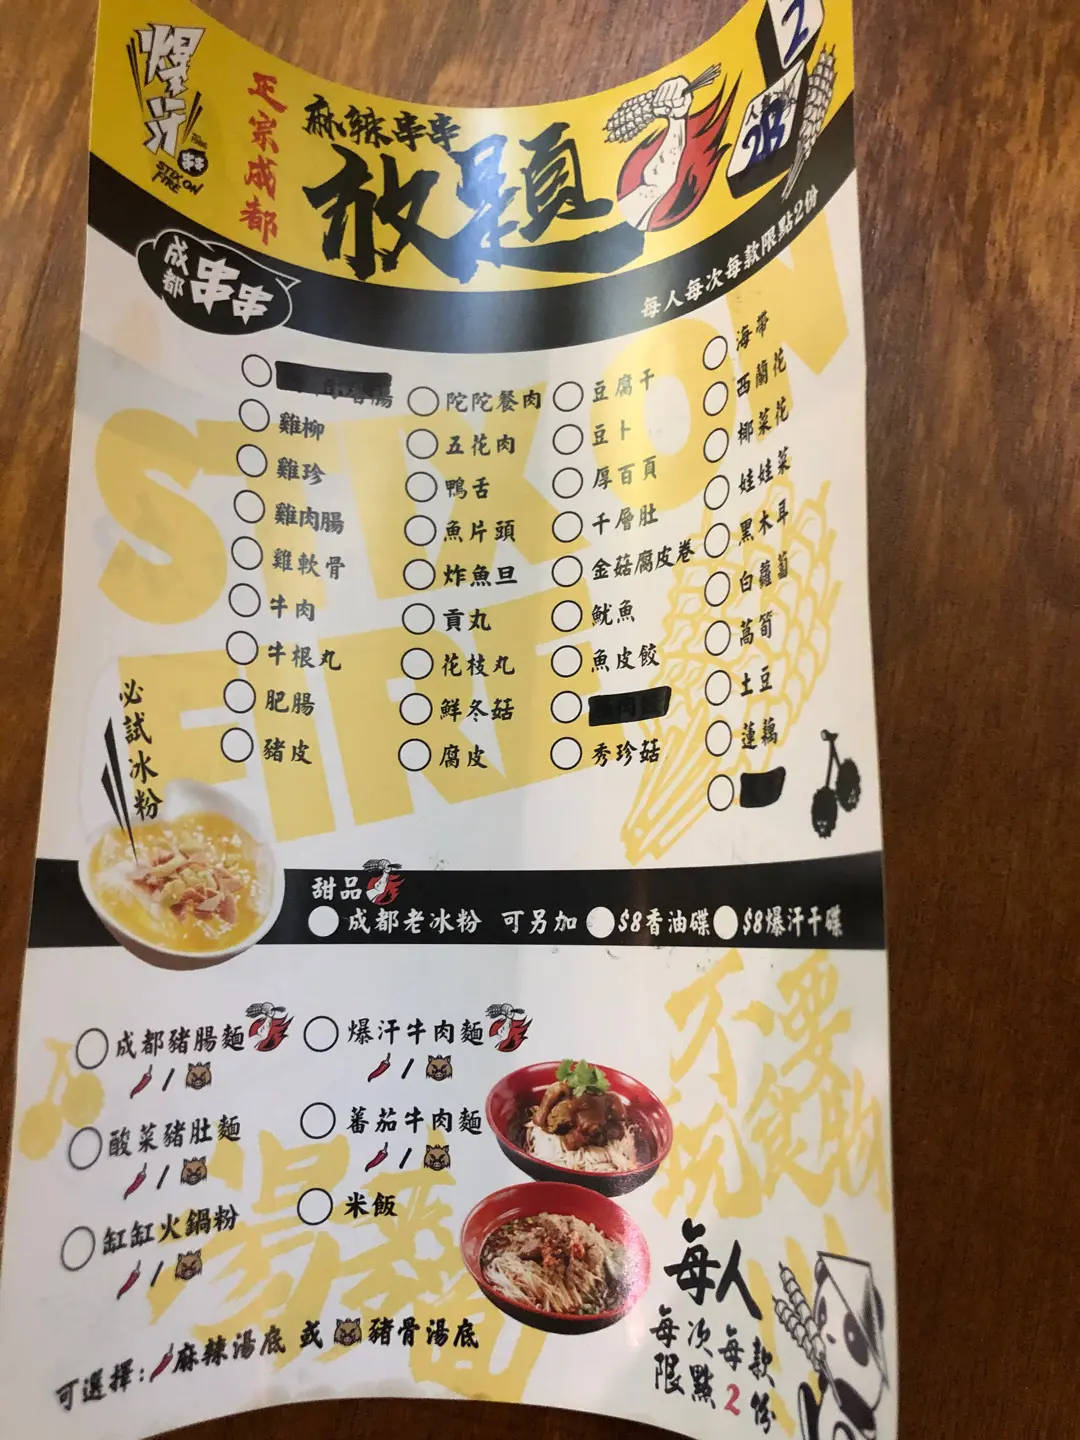 爆汗
串串
STIX ON
FIRE
正宗成都
麻辣串串
放題
2
人數
2B
每人每次每款限點2份
成都
串串
STIX ON
FIRE
雞柳
雞珍
雞肉腸
雞軟骨
牛肉
牛根丸
肥腸
豬皮
陀陀餐肉
五花肉
鴨舌
魚片頭
炸魚旦
貢丸
花枝丸
鮮冬菇
腐皮
豆腐干
豆卜
厚百頁
千層肚
金菇腐皮卷
魷魚
魚皮餃
秀珍菇
海帶
西蘭花
椰菜花
娃娃菜
黑木耳
白蘿蔔
萵筍
土豆
蓮藕
必試冰粉
甜品
成都老冰粉 可另加 $8香油碟 $8爆汗干碟
成都豬腸麵
/
酸菜豬肚麵
/
缸缸火鍋粉
/
爆汗牛肉麵
/
蕃茄牛肉麵
/
米飯
湯麵
可選擇:麻辣湯底 或 豬骨湯底
不要
玩食物
每人
每次每款
限點2份